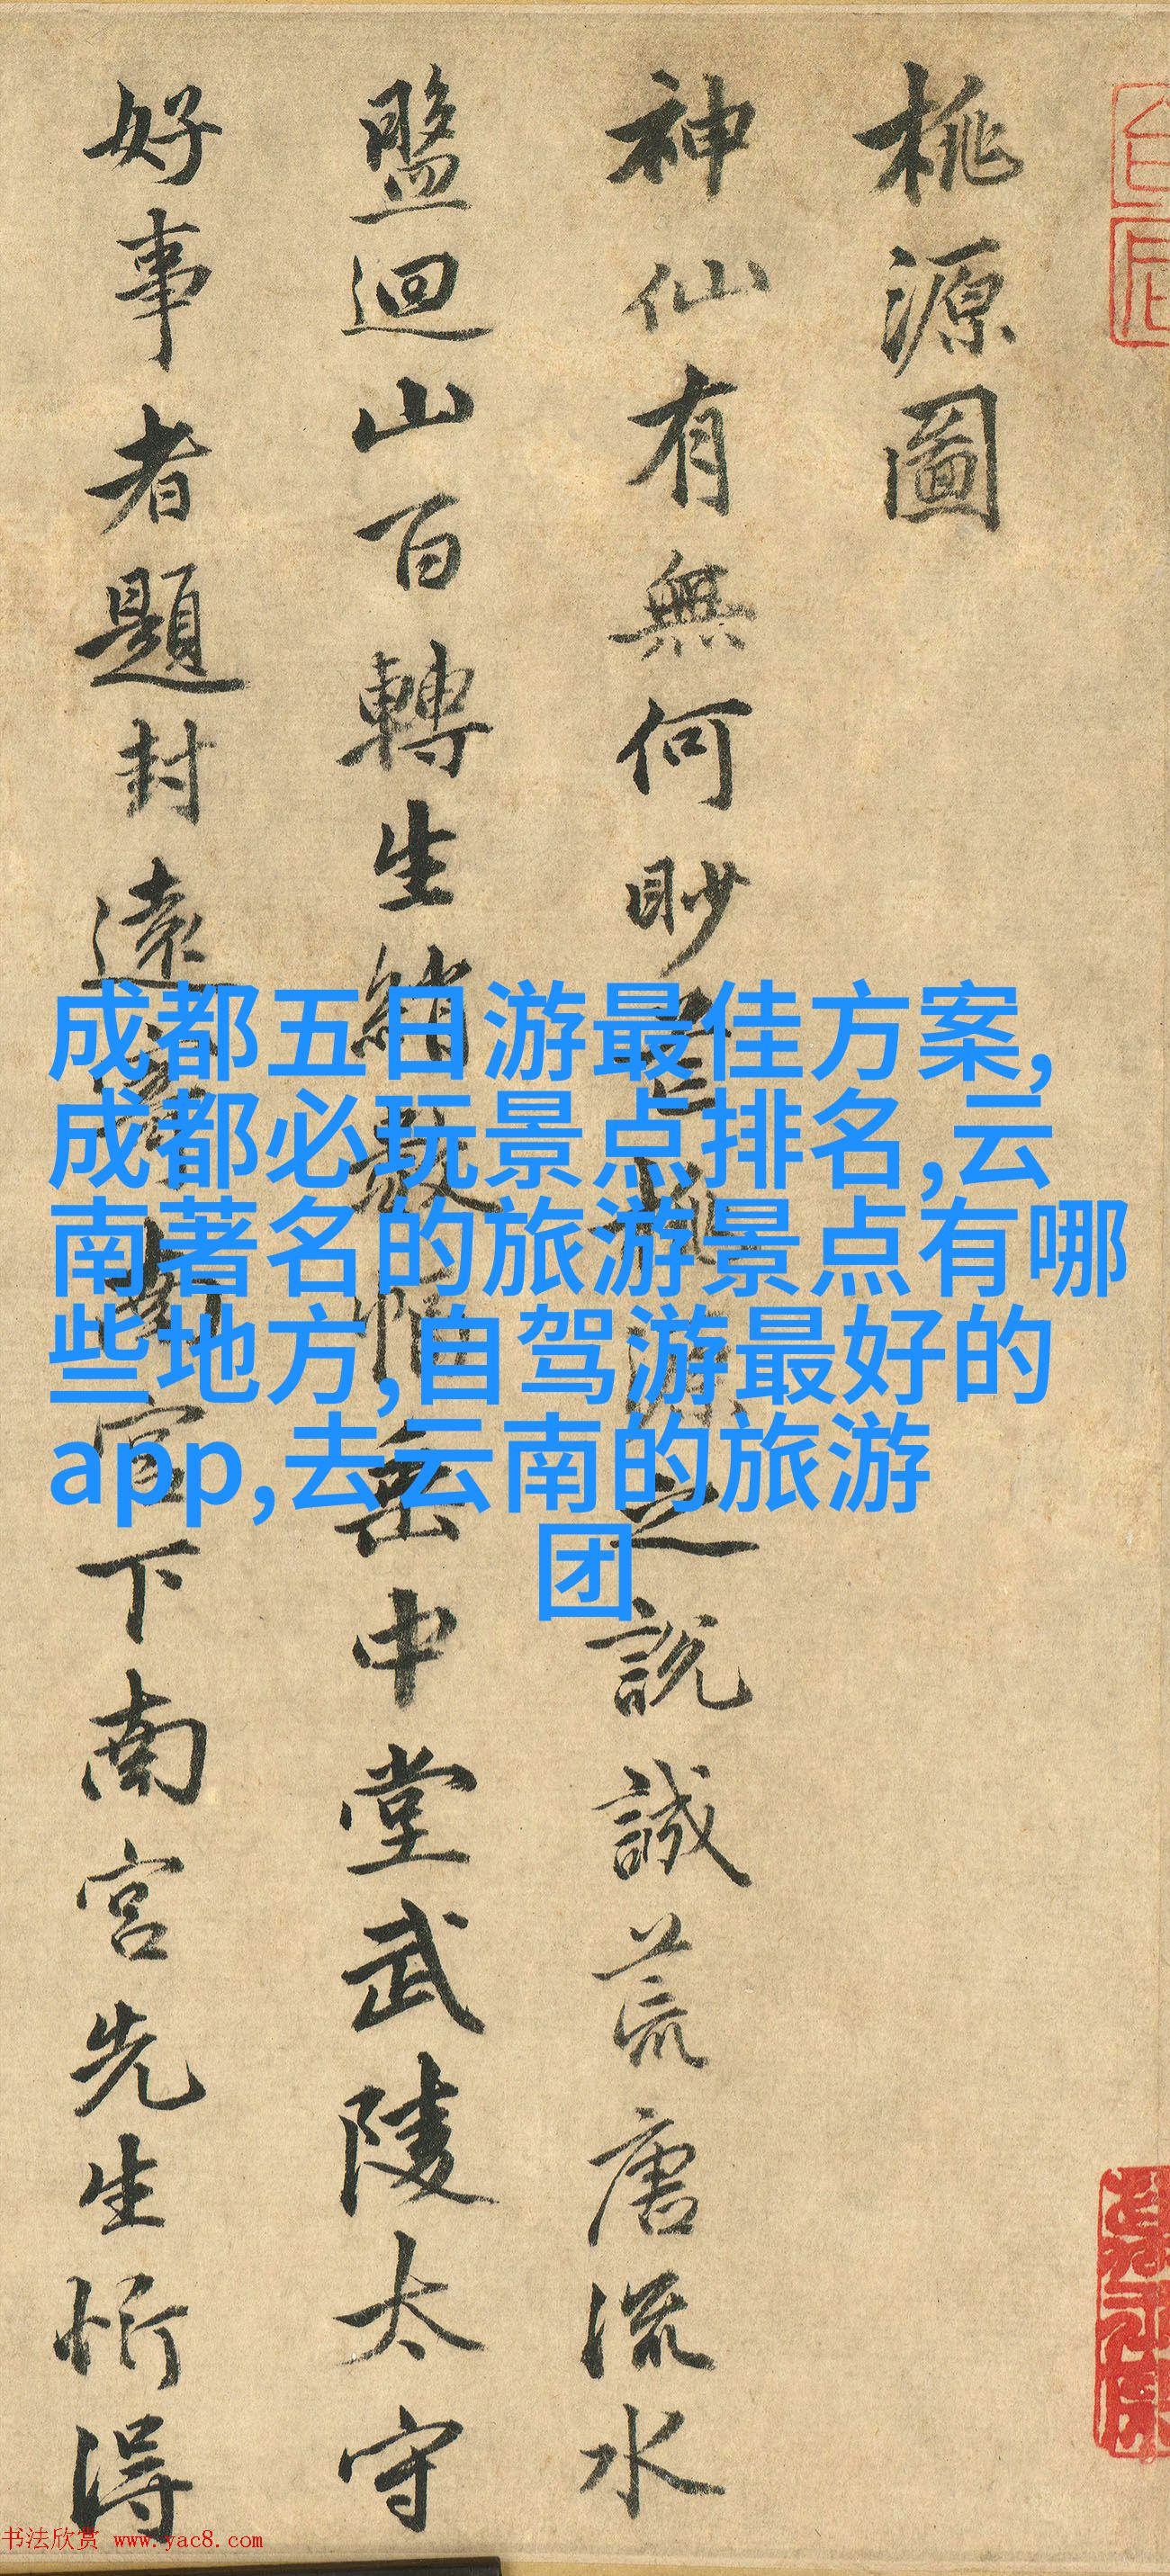 桃源圖
神仙有無何眇芒桃源之說誠荒唐流水
盤迴山百轉生綃數幅垂中堂武陵太守
好事者題封遠寄南宮下南宮先生忻得
成都五日游最佳方案,
成都必玩景点排名,云
南著名的旅游景点有哪
些地方,自驾游最好的
app,去云南的旅游
团
书法欣赏 www.yac8.com